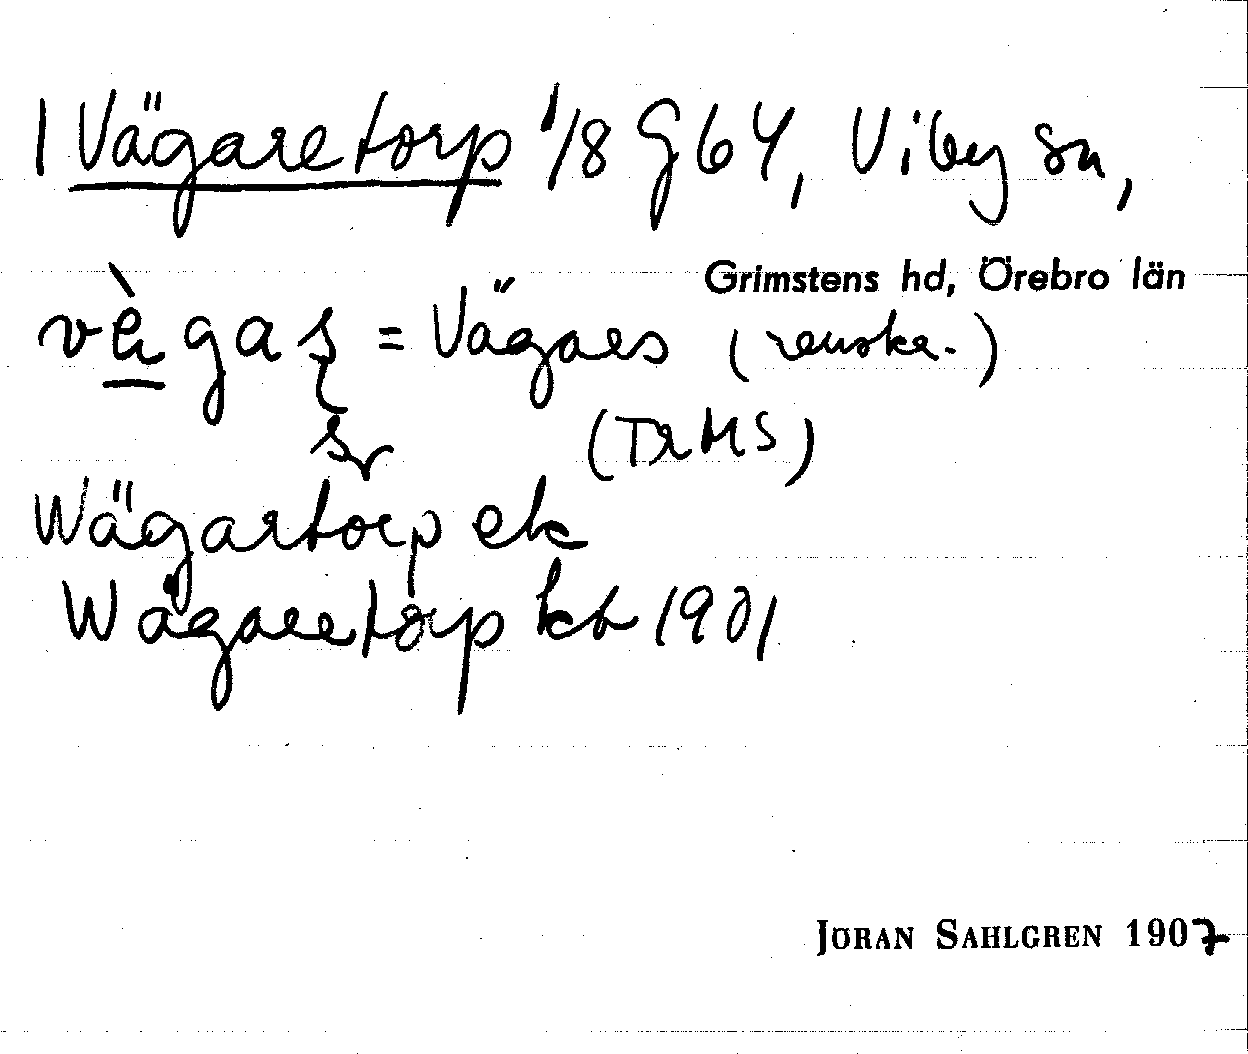 1 Vägaretorp 1/8 G64, Viby sn,
Grimstens hd, Örebro län
vègas = Vägaes (renskr.)
(TRMS)
Wägartorp ek
Wägaretorp kb 1901
JÖRAN SAHLGREN 1907